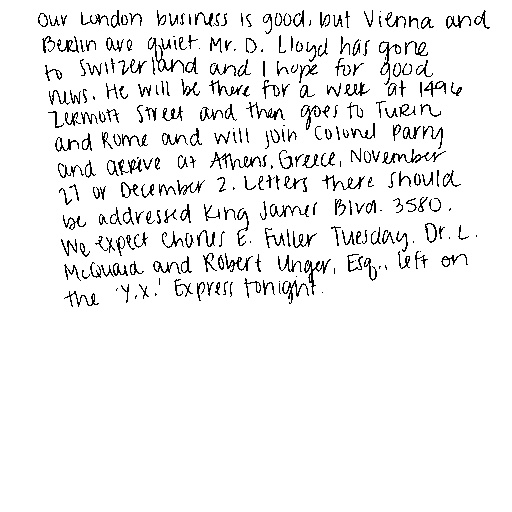 Our London business is good, but Vienna and
Berlin are quiet. Mr. D. Lloyd has gone
to Switzerland and I hope for good
news. He will be there for a week at 1496
Zermott Street and then goes to Turin
and Rome and will join Colonel Parry
and arrive at Athens, Greece, November
27 or December 2. Letters there should
be addressed King James Blvd. 3580.
We expect Charles E. Fuller Tuesday. Dr. L.
McQuaid and Robert Unger, Esq., left on
the 'Y.X.' Express tonight.